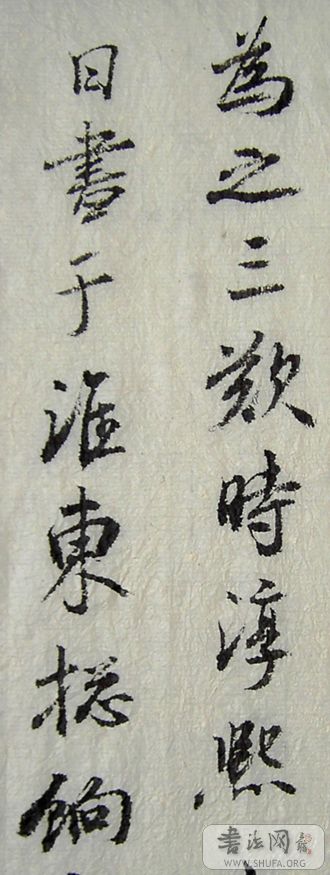 為之三歎時淳熙
日書于淮東揔餉
書法网
WWW.SHUFA.ORG